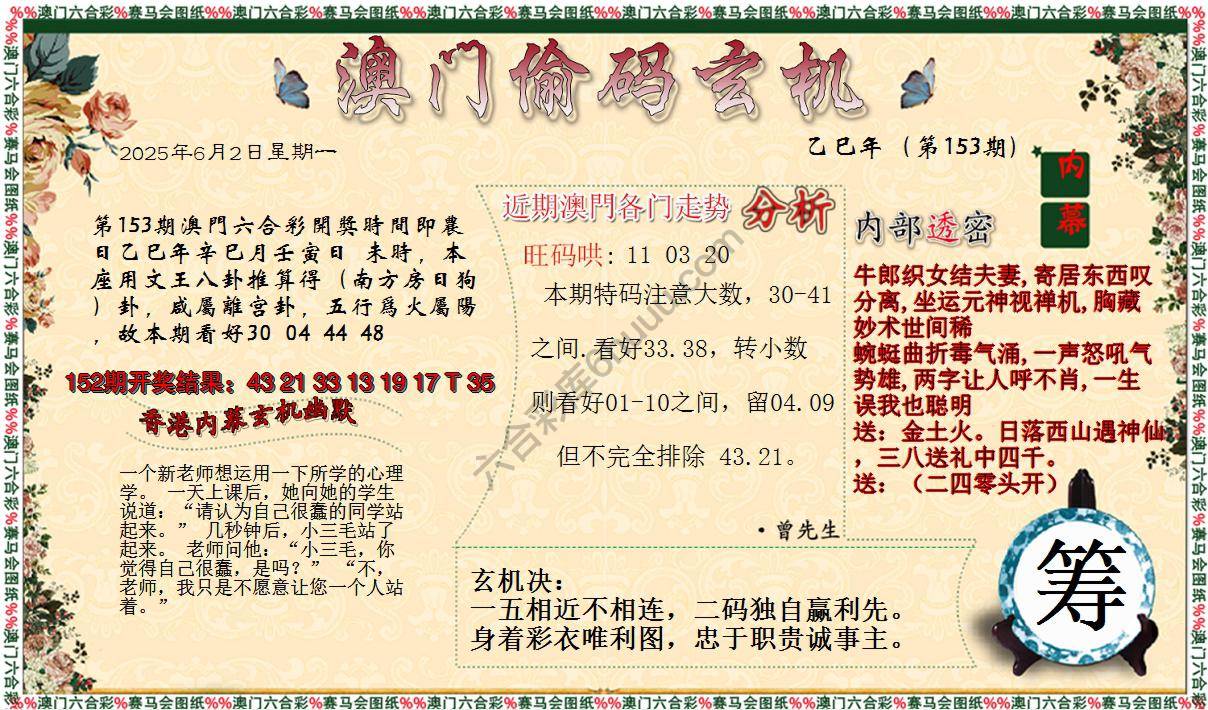 %%澳门六合彩%赛马会图纸%%澳门六合彩%赛马会图纸%%澳门六合彩%赛马会图纸%%澳门六合彩%赛马会图纸%%澳门六合彩%赛马会图纸%%澳门六合彩%赛马会图纸%%
澳门偷码玄机
2025年6月2日星期一
乙巳年（第153期）
内幕
第153期澳門六合彩開獎時間即農
日乙巳年辛巳月壬寅日 未時，本
座用文王八卦推算得（南方房日狗
）卦，咸屬離宫卦，五行爲火屬陽
，故本期看好30 04 44 48
152期开奖结果：43 21 33 13 19 17 T 35
香港内幕玄机幽默
一个新老师想运用一下所学的心理
学。 一天上课后，她向她的学生
说道：“请认为自己很蠢的同学站
起来。” 几秒钟后，小三毛站了
起来。 老师问他：“小三毛，你
觉得自己很蠢，是吗？” “不，
老师，我只是不愿意让您一个人站
着。”
近期澳門各门走势 分析
旺码哄: 11 03 20
本期特码注意大数，30-41
之间.看好33.38，转小数
则看好01-10之间，留04.09
但不完全排除 43.21。
·曾先生
内部透密
牛郎织女结夫妻,寄居东西叹
分离,坐运元神视禅机,胸藏
妙术世间稀
蜿蜒曲折毒气涌,一声怒吼气
势雄,两字让人呼不肖,一生
误我也聪明
送：金土火。日落西山遇神仙
，三八送礼中四千。
送：（二四零头开）
玄机决：
一五相近不相连，二码独自赢利先。
身着彩衣唯利图，忠于职贵诚事主。
筹
六合彩库6huuu.com
%%澳门六合彩%赛马会图纸%%澳门六合彩%赛马会图纸%%澳门六合彩%赛马会图纸%%澳门六合彩%赛马会图纸%%澳门六合彩%赛马会图纸%%澳门六合彩%赛马会图纸%%